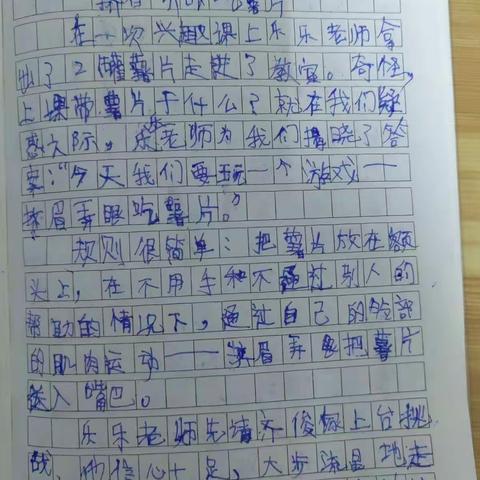 挤眉弄眼吃薯片
在一次兴趣课上乐乐老师拿
出了2罐薯片走进了教室。奇怪,
上课带薯片干什么?就在我们疑
惑之际,乐老师为我们揭晓了答
案:“今天我们要玩一个游戏——
挤眉弄眼吃薯片。”
规则很简单:把薯片放在额
头上,在不用手和不通过别人的
帮助的情况下,通过自己的脸部
的肌肉运动——挤眉弄眼把薯片
送入嘴巴。
乐乐老师先请齐俊上台挑
战,他信心十足,大步流星地走